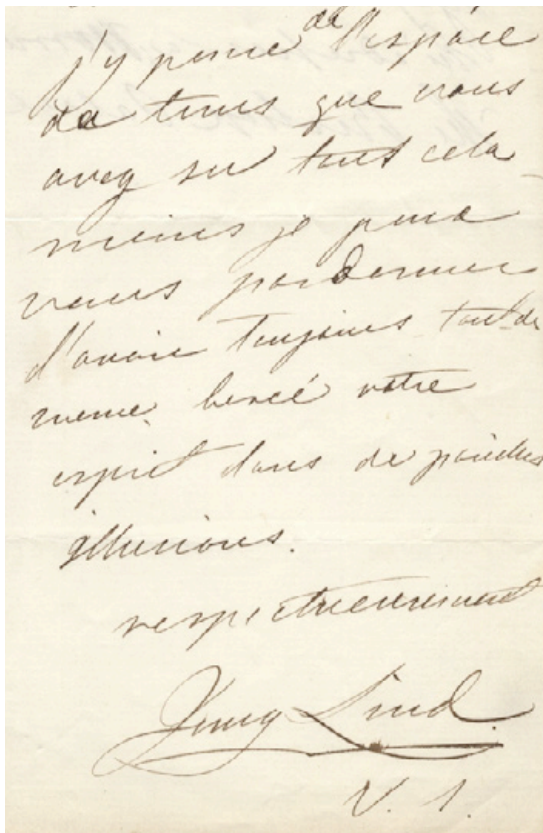 j'y pense de l'espace
de tems que vous
avez su tout cela
moins je peux
vous pardonner
d'avoir toujours tout de
meme bercé votre
esprit dans de pareilles
illusions.
respectueusement
Jenny Lind
V.